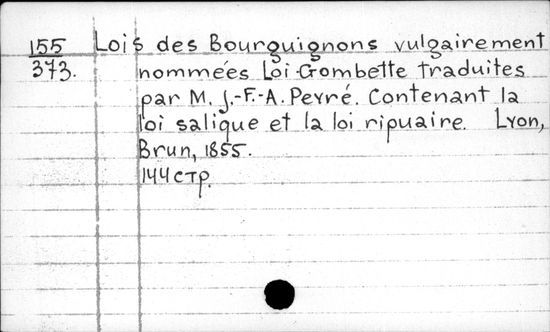 155 Lois des Bourguignons vulgairement
373. nommées Loi Gombette traduites
par M. J.-F.-A. Peyré. Contenant la
loi salique et la loi ripuaire. Lyon,
Brun, 1855.
144 стр.